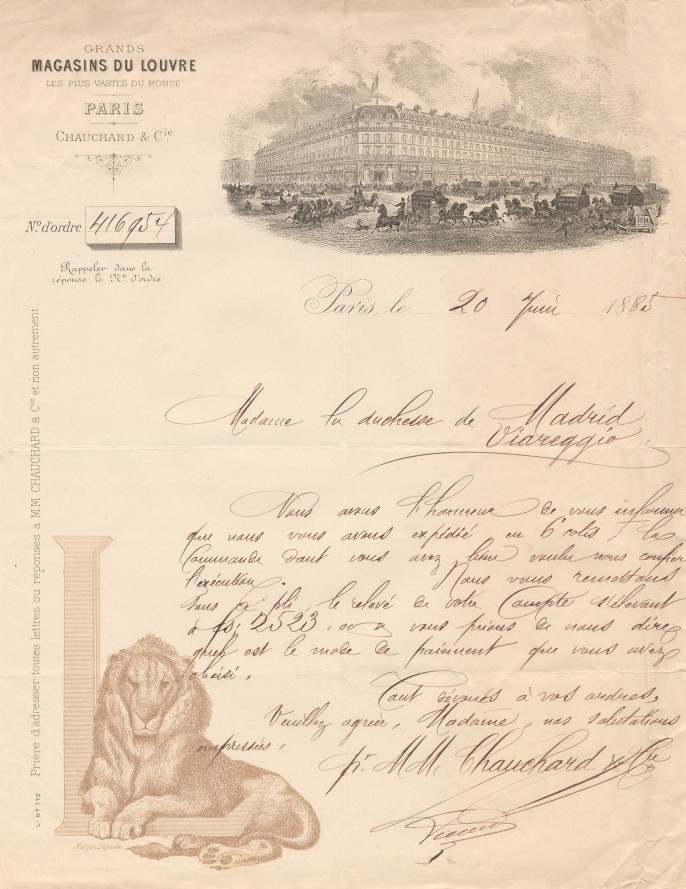 GRANDS
MAGASINS DU LOUVRE
LES PLUS VASTES DU MONDE
PARIS
CHAUCHARD & Cie.
No. d'ordre 416954
Rappeler dans la
réponse le No. d'ordre
Paris, le 20 Juin 1885
Madame la duchesse de Madrid
Viareggio.
Nous avons l'honneur de vous informer
que nous vous avons expédié en 6 colis, la
Commande dont vous avez bien voulu nous confier
l'exécution. Nous vous remettons
sous ce pli, le relevé de votre Compte s'élevant
à fs: 2523,00 & vous prions de nous dire
quel est le mode de paiement que vous avez
choisi.
Tout dévoués à vos ordres.
Veuillez agréer, Madame, nos salutations
empressées,
pr. MM. Chauchard & Cie
Prière d'adresser toutes lettres ou réponses à MM. CHAUCHARD & Cie et non autrement
L-No 112